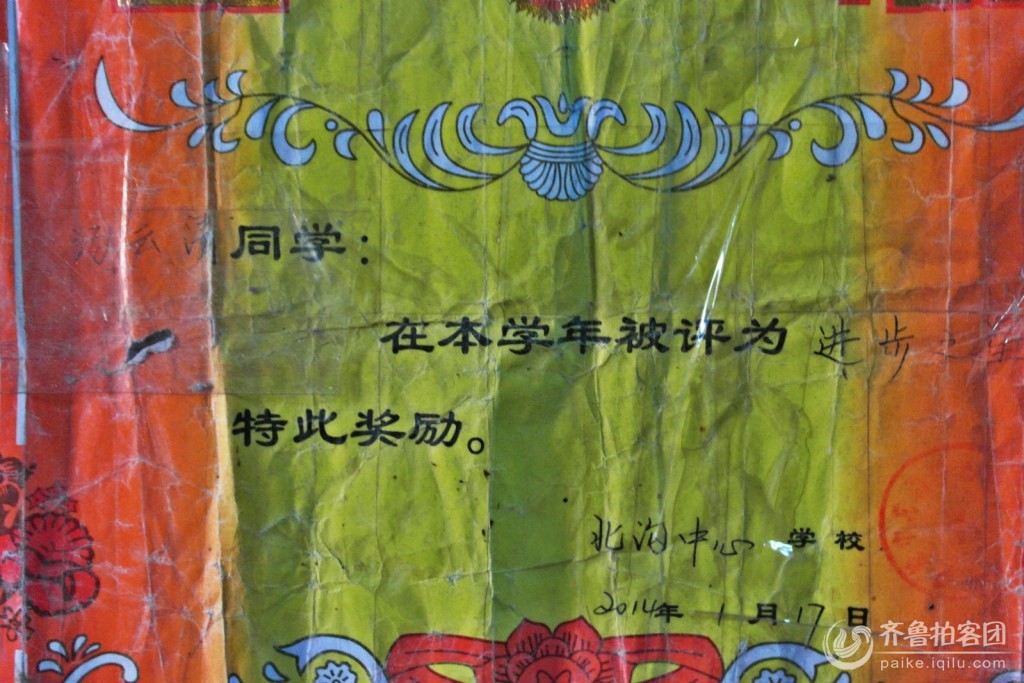 同学：
在本学年被评为 进步之
特此奖励。
北沟中心 学校
2014年 1 月 17 日
齐鲁拍客团
paike.iqilu.com